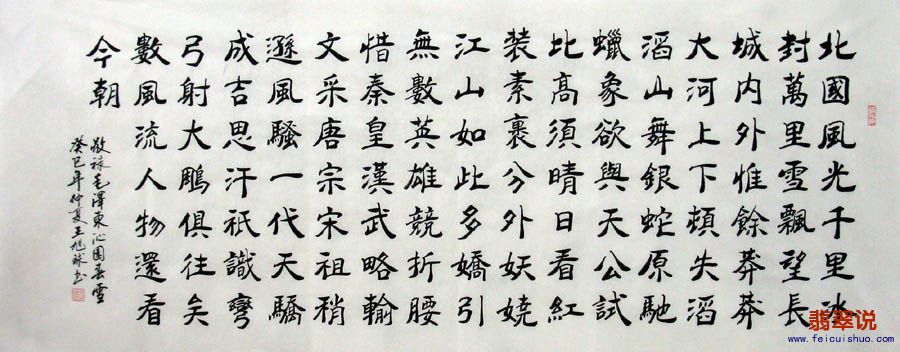 北國風光千里冰
封萬里雪飄望長
城內外惟餘莽莽
大河上下頓失滔
滔山舞銀蛇原馳
蠟象欲與天公試
比高須晴日看紅
裝素裹分外妖嬈
江山如此多嬌引
無數英雄競折腰
惜秦皇漢武略輸
文采唐宗宋祖稍
遜風騷一代天驕
成吉思汗祇識彎
弓射大鵰俱往矣
數風流人物還看
今朝
敬録毛澤東沁園春雪
癸巳年仲夏王旭球书
翡翠说
www.feicuishuo.com